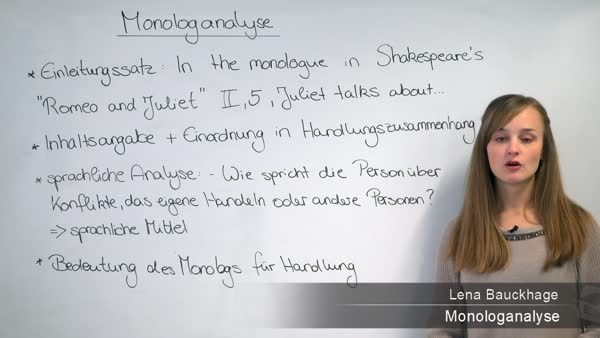 Monologanalyse
* Einleitungssatz: In the monologue in Shakespeare's
"Romeo and Juliet" II,5, Juliet talks about...
* Inhaltsangabe + Einordnung in Handlungszusammenhang
* sprachliche Analyse: - Wie spricht die Person über
Konflikte, das eigene Handeln oder andere Personen?
=> sprachliche Mittel
* Bedeutung des Monologs für Handlung
Lena Bauckhage
Monologanalyse